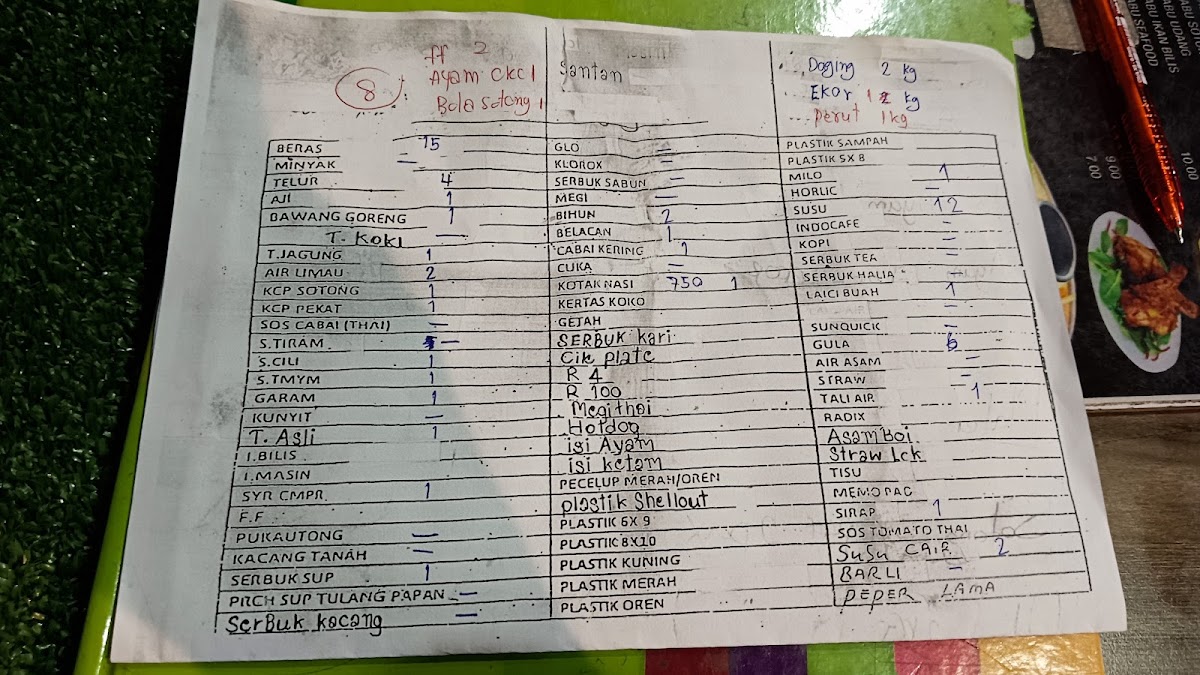 8
ff 2
Ayam CKC 1
Bola sotong 1
Santan
Daging 2 kg
Ekor 1 kg
Perut 1kg
BERAS 15
MINYAK —
TELUR 4
AJI 1
BAWANG GORENG 1
T. KOKI —
T.JAGUNG 1
AIR LIMAU 2
KCP SOTONG 1
KCP PEKAT 1
SOS CABAI (THAI) —
S.TIRAM —
S.CILI 1
S.TMYM 1
GARAM 1
KUNYIT —
T. Asli 1
I.BILIS
I.MASIN
SYR CMPR 1
F.F
PUKAUTONG —
KACANG TANAH —
SERBUK SUP 1
PRCH SUP TULANG PAPAN —
SerBuk kacang —
GLO —
KLOROX —
SERBUK SABUN —
MEGI —
BIHUN 2
BELACAN 1
CABAI KERING 1
CUKA —
KOTAK NASI 750 1
KERTAS KOKO
GEJAH
SERBUK kari
Cik plate
R 4
R 100
Megithai
Hotdog
isi Ayam
isi ketam
PECELUP MERAH/OREN
plastik Shellout
PLASTIK 6X 9
PLASTIK 8X10
PLASTIK KUNING
PLASTIK MERAH
PLASTIK OREN
PLASTIK SAMPAH
PLASTIK 5X 8
MILO 1
HORLIC —
SUSU 12
INDOCAFE —
KOPI —
SERBUK TEA —
SERBUK HALIA —
LAICI BUAH 1
SUNQUICK —
GULA 6
AIR ASAM —
STRAW —
TALI AIR 1
RADIX
Asam Boi
Straw Lck
TISU
MEMO PAD
SIRAP 1
SOS TOMATO THAI
SuSu CAIR 2
BARLI —
PEPER LAMA
ABU SEAFOOD
ABU IKAN BILIS
ABU UDANG
10.00
9.00
7.00